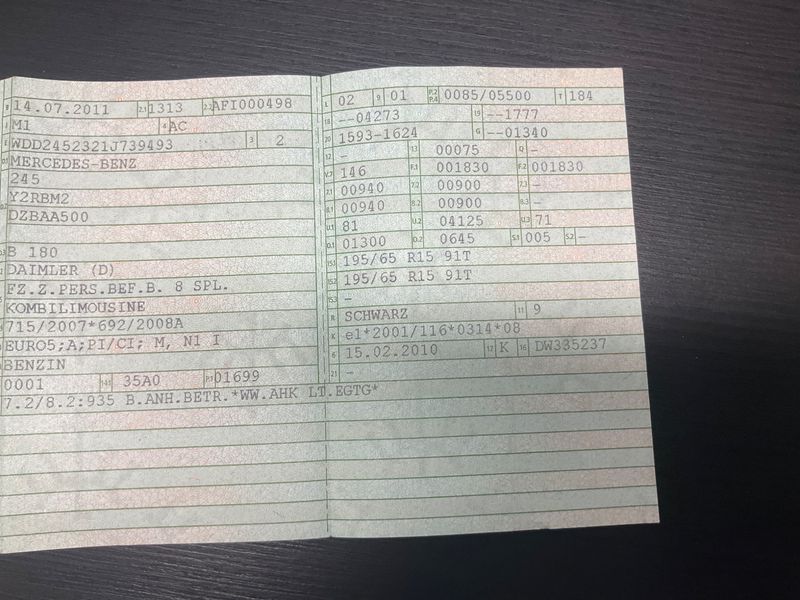 B 14.07.2011 2.1 1313 2.2 AFI000498
J M1 4 AC
E WDD2452321J739493 3 2
D.1 MERCEDES-BENZ
245
D.2 Y2RBM2
DZBAA500
D.3 B 180
2 DAIMLER (D)
5 FZ.Z.PERS.BEF.B. 8 SPL.
KOMBILIMOUSINE
715/2007*692/2008A
EURO5;A;PI/CI; M, N1 I
BENZIN
0001 14.1 35A0 P.1 01699
7.2/8.2:935 B.ANH.BETR.*WW.AHK LT.EGTG*
L 02 9 01 P.2 P.4 0085/05500 T 184
18 --04273 19 --1777
20 1593-1624 G --01340
12 - 13 00075 Q -
V.7 146 F.1 001830 F.2 001830
7.1 00940 7.2 00900 7.3 -
8.1 00940 8.2 00900 8.3 -
U.1 81 U.2 04125 U.3 71
O.1 01300 O.2 0645 S.1 005 S.2 -
15.1 195/65 R15 91T
15.2 195/65 R15 91T
15.3 -
R SCHWARZ 11 9
K e1*2001/116*0314*08
6 15.02.2010 17 K 16 DW335237
21 -